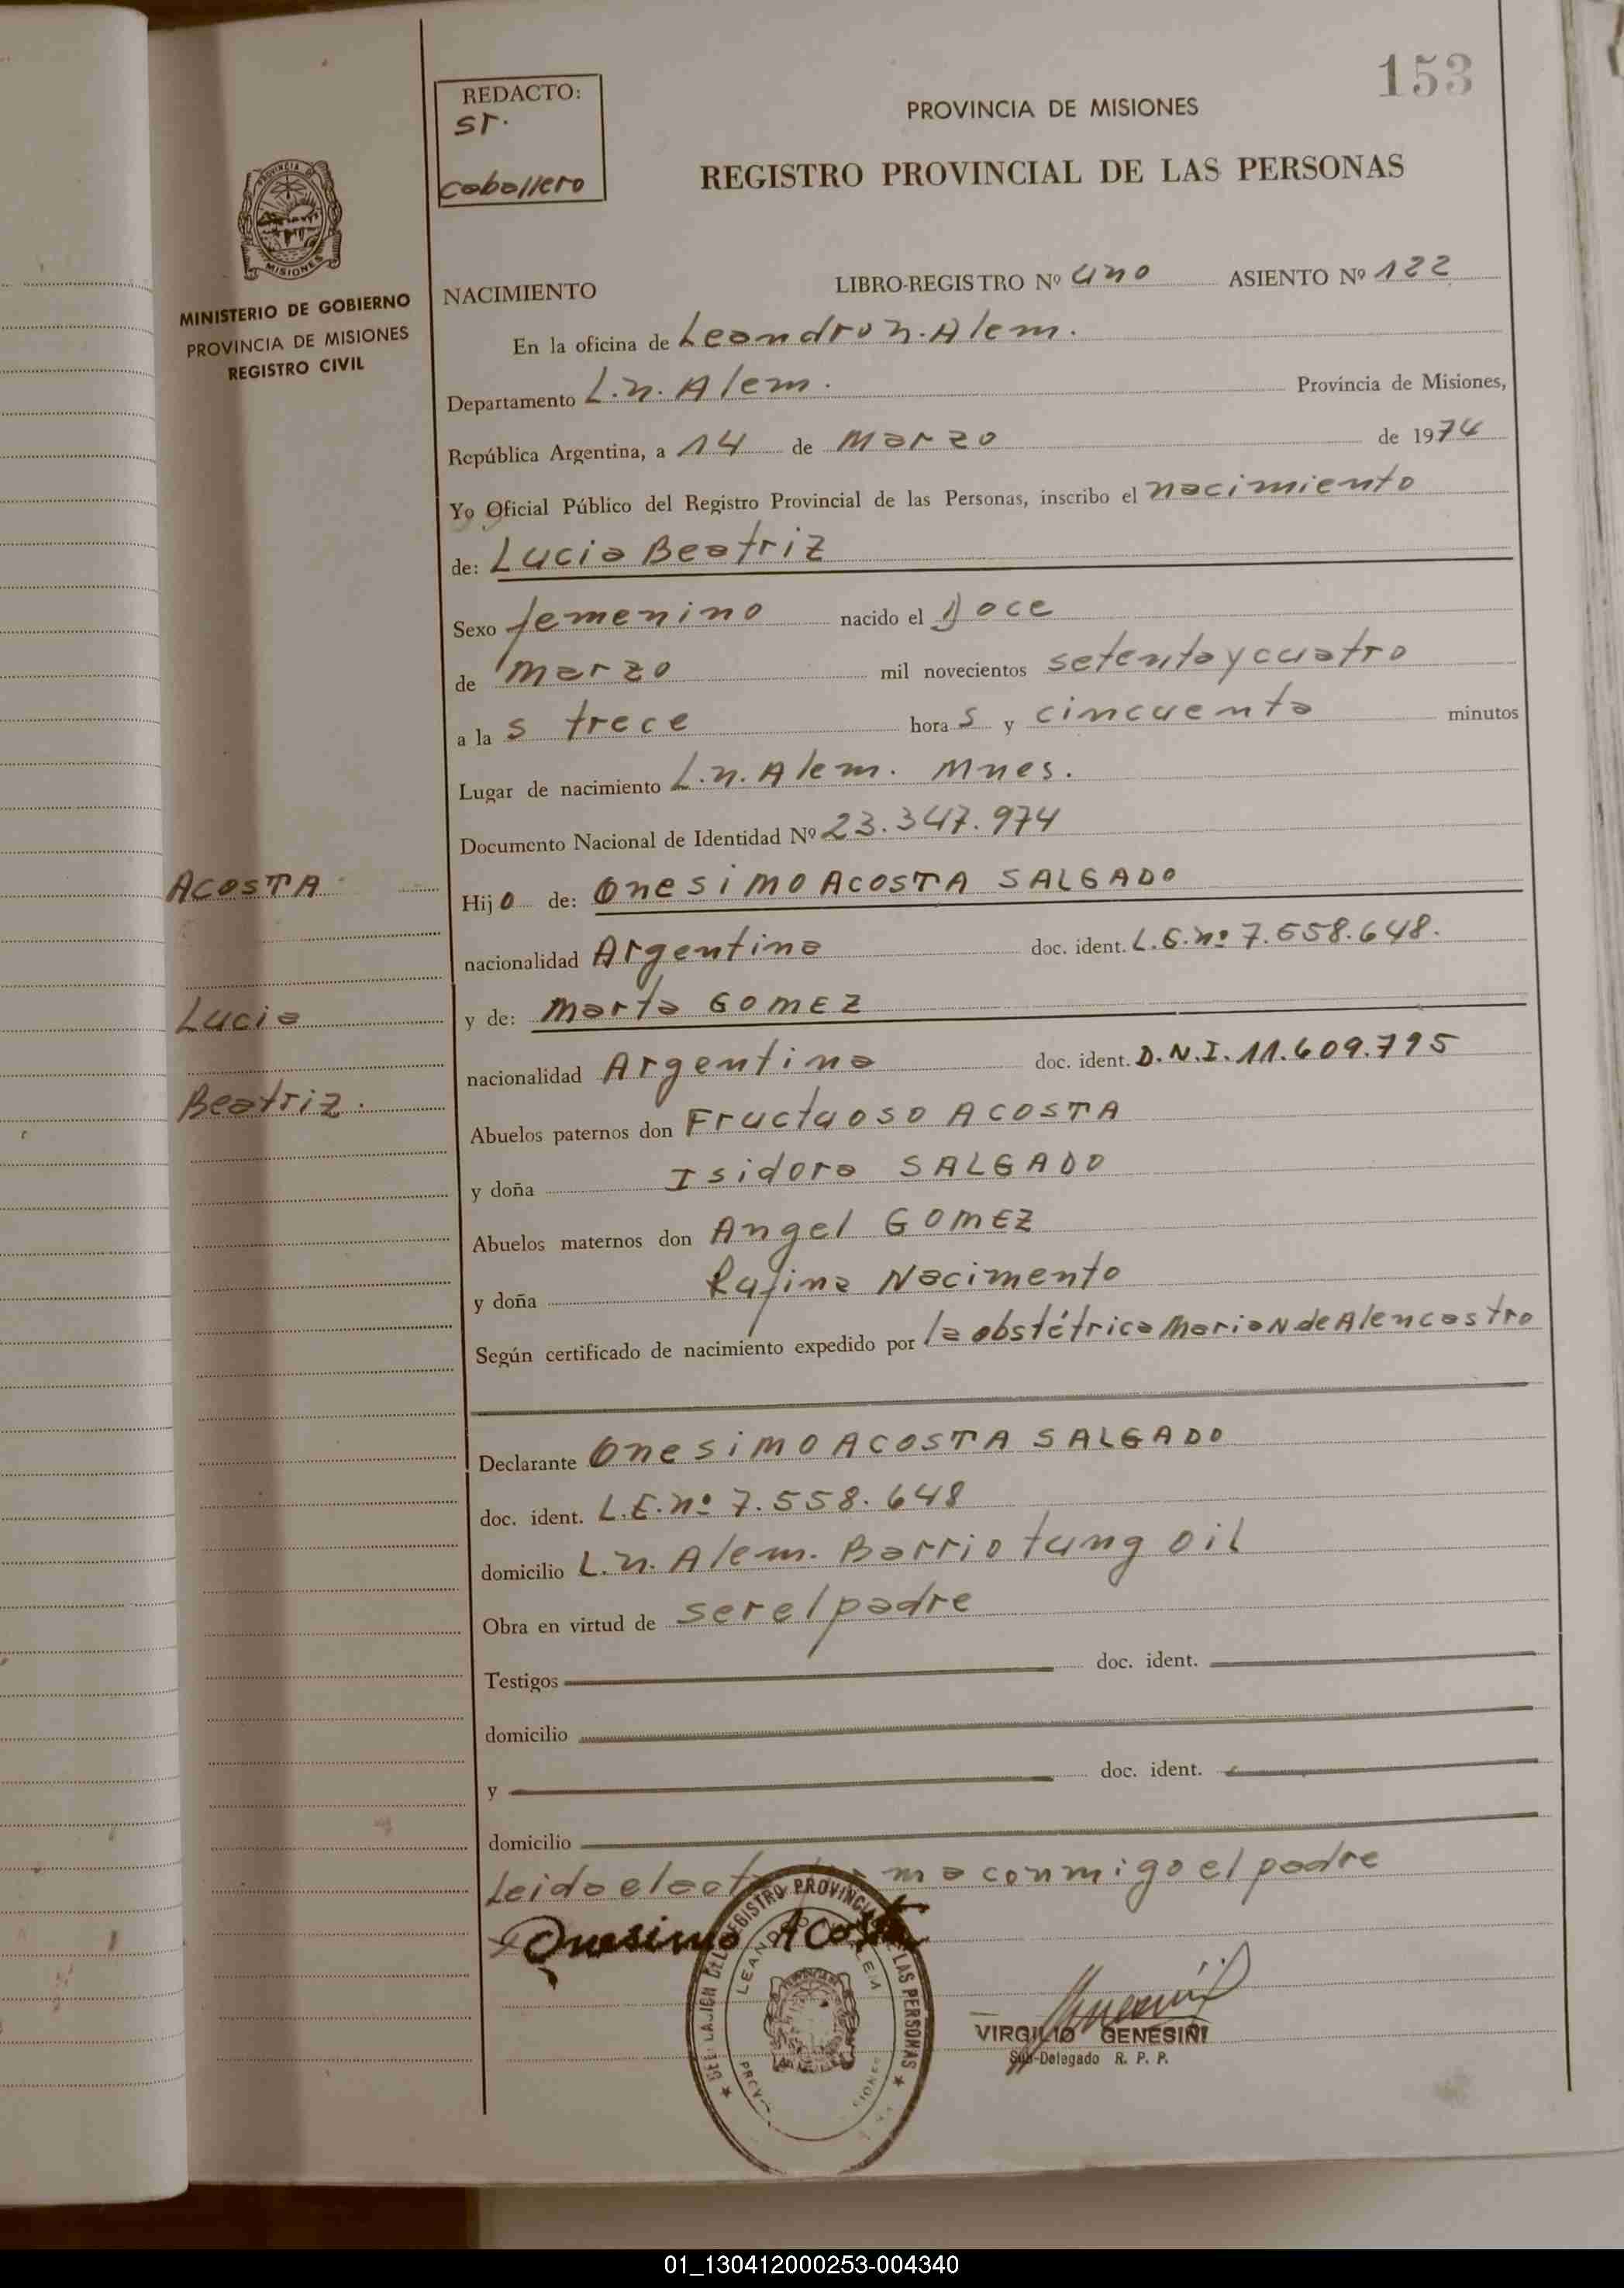 153
REDACTO:
sr.
caballero
PROVINCIA DE MISIONES
REGISTRO PROVINCIAL DE LAS PERSONAS
PROVINCIA DE
MISIONES
MINISTERIO DE GOBIERNO
PROVINCIA DE MISIONES
REGISTRO CIVIL
NACIMIENTO LIBRO-REGISTRO Nº uno ASIENTO Nº 122
En la oficina de Leandro n. Alem.
Departamento L.n. Alem. Provincia de Misiones,
República Argentina, a 14 de Marzo de 1974
Yo Oficial Público del Registro Provincial de las Personas, inscribo el nacimiento
de: Lucia Beatriz
Sexo femenino nacido el Doce
de marzo mil novecientos setenta y cuatro
a la s trece hora s y cincuenta minutos
Lugar de nacimiento L.n. Alem. Mnes.
Documento Nacional de Identidad Nº 23.347.974
ACOSTA
Hija de: Onesimo ACOSTA SALGADO
nacionalidad Argentina doc. ident. L.E. nº 7.558.648.
Lucia
y de: Marta GOMEZ
nacionalidad Argentina doc. ident. D.N.I. 11.609.795
Beatriz.
Abuelos paternos don Fructuoso ACOSTA
y doña Isidora SALGADO
Abuelos maternos don Angel GOMEZ
y doña Rufina Nacimento
Según certificado de nacimiento expedido por la obstétrica Maria N de Alencastro
Declarante Onesimo ACOSTA SALGADO
doc. ident. L.E. nº 7.558.648
domicilio L.n. Alem. Barrio tung oil
Obra en virtud de ser el padre
Testigos doc. ident.
domicilio
y doc. ident.
domicilio
Leido el acta conmigo el padre
Onesimo Acosta
DEL REGISTRO PROVINCIAL DE LAS PERSONAS
VIRGILIO GENESINI
Sub-Delegado R. P. P.
01_130412000253-004340